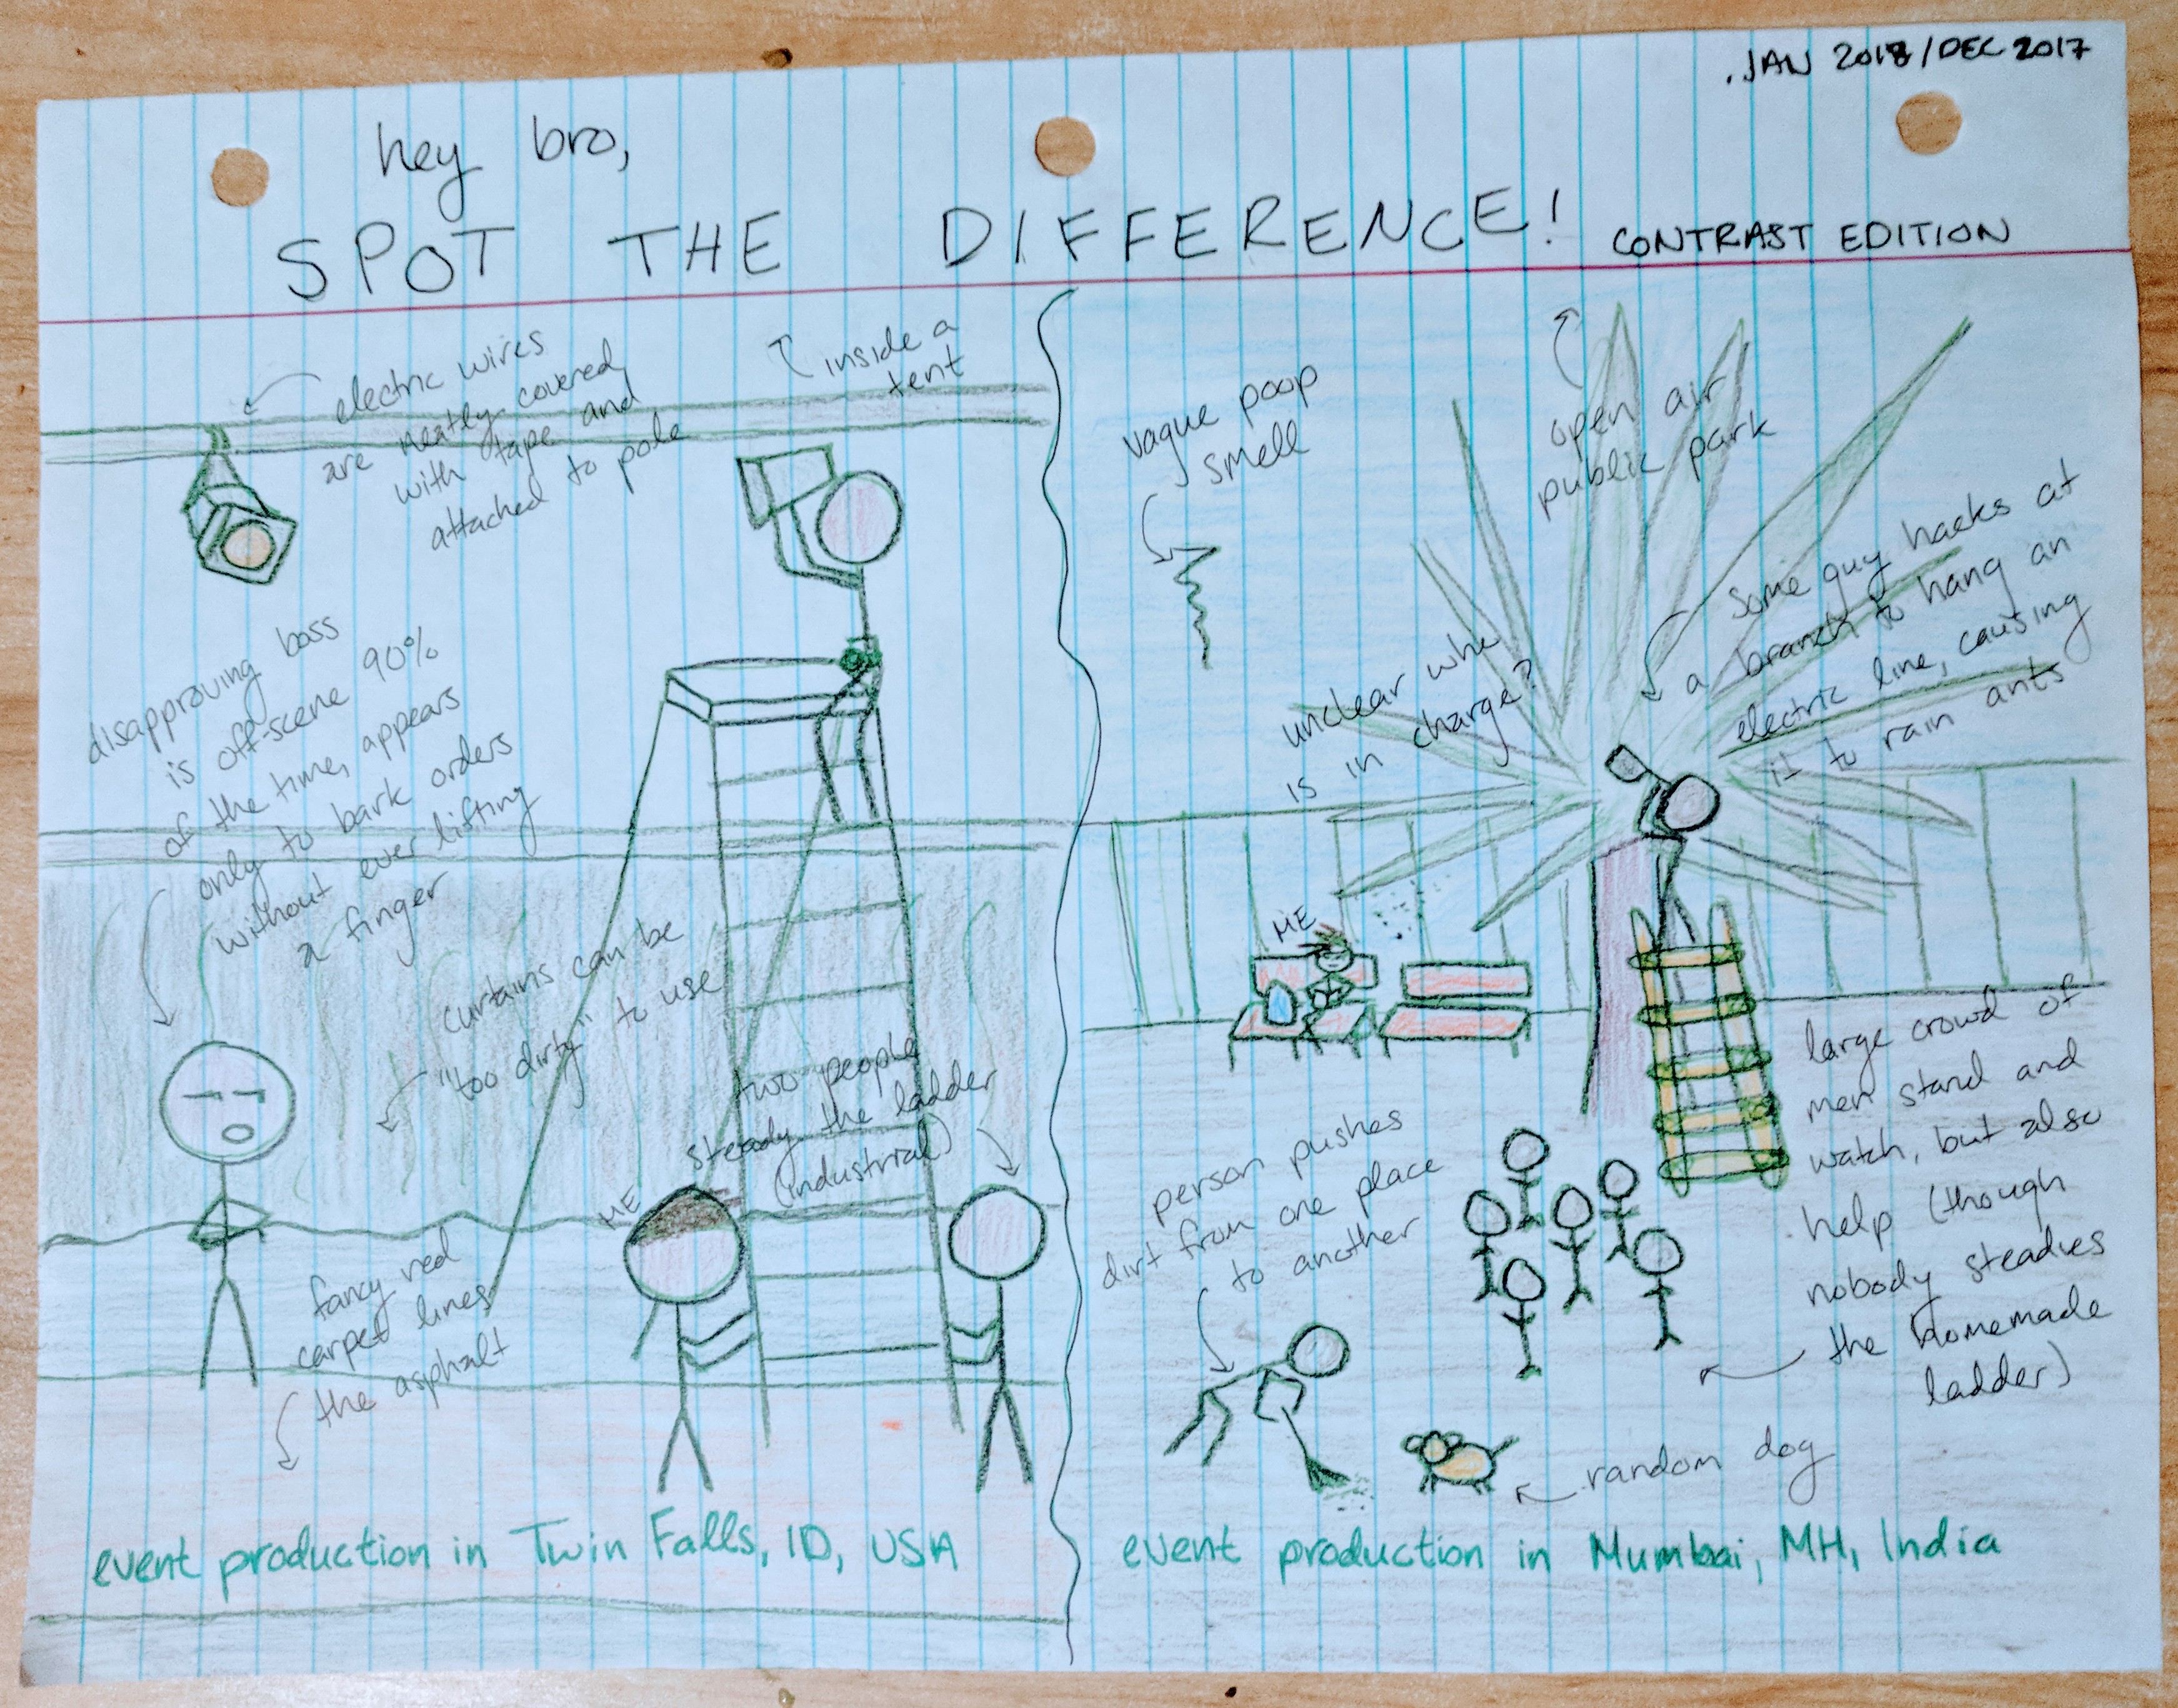 JAN 2018/DEC 2017
hey bro,
SPOT THE DIFFERENCE!
CONTRAST EDITION
electric wires
are neatly covered
with tape and
attached to pole
inside a
tent
disapproving boss
is off-scene 90%
of the time, appears
only to bark orders
without ever lifting
a finger
curtains can be
"too dirty" to use
two people
steady the ladder
(industrial)
ME
fancy red
carpet lines
the asphalt
event production in Twin Falls, ID, USA
vague poop
smell
open air
public park
some guy hacks at
a branch to hang an
electric line, causing
it to rain ants
unclear who
is in charge?
ME
person pushes
dirt from one place
to another
large crowd of
men stand and
watch, but also
help (though
nobody steadies
the homemade
ladder)
random dog
event production in Mumbai, MH, India